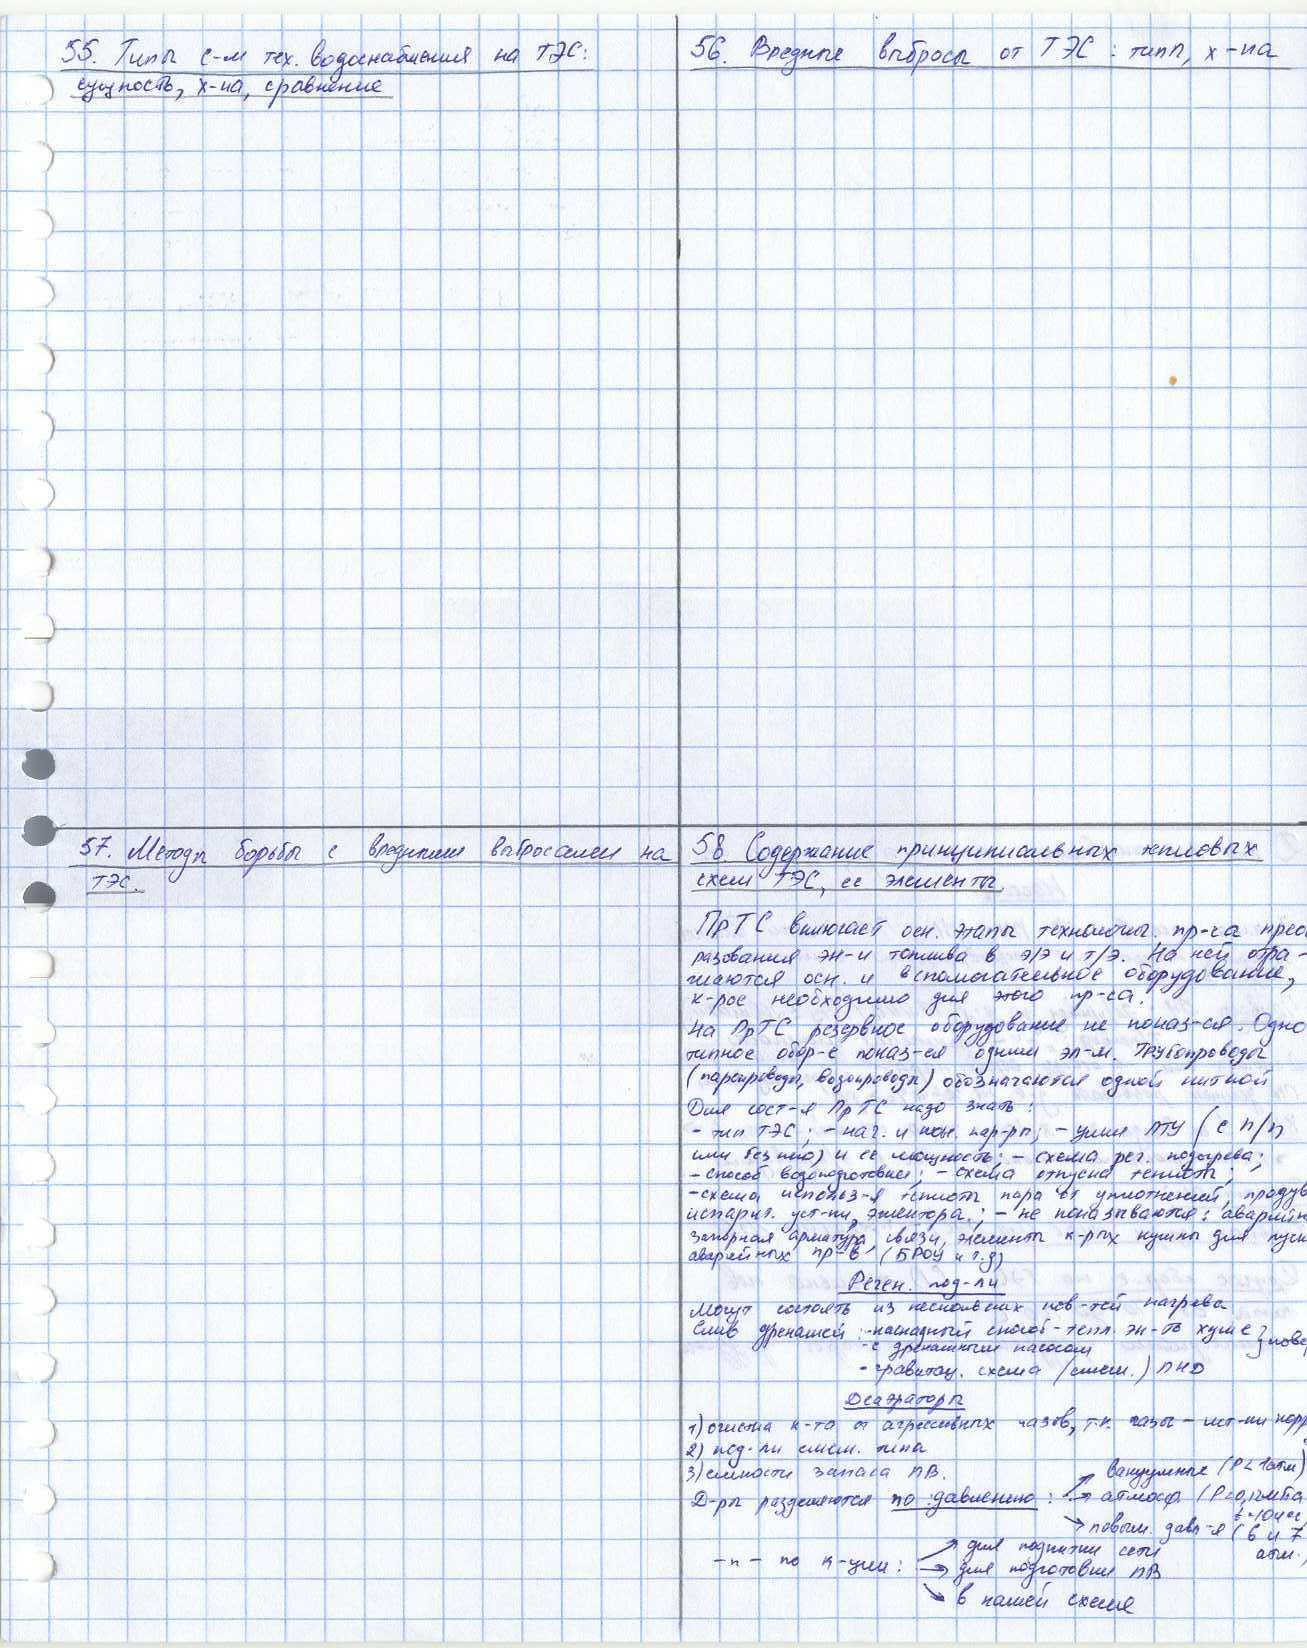 55. Типы с-м тех. водоснабжения на ТЭС:
сущность, х-ка, сравнение
56. Вредные выбросы от ТЭС: типы, х-ка
57. Методы борьбы с вредными выбросами на
ТЭС.
58. Содержание принципиальных тепловых
схем ТЭС, ее элементы.
ПрТС включает осн. этапы технологич. пр-са преоб
разования эн-и топлива в э/э и т/э. На ней отра-
жаются осн. и вспомогательное оборудование,
к-рое необходимо для этого пр-са.
На ПрТС резервное оборудование не показ-ся. Одно
типное обор-е показ-ся одним эл-м. Трубопроводы
(паропроводы, водопроводы) обозначаются одной ниткой
Для сост-я ПрТС надо знать:
- тип ТЭС; - нач. и кон. пар-ры; - цикл ПТУ (с п/п
или без него) и ее мощность; - схема рег. подогрева;
- способ водоподготовки; - схема отпуска теплоты;
- схема использ-я теплоты пара от уплотнений, продув
испарит. уст-ки, эжектора.; - не показываются: аварийн
запорная арматура, связи, элементы к-рых нужны для пуск
аварийных пр-в (БРОУ и т.д)
Реген. под-ли
Могут состоять из нескольких пов-тей нагрева
Слив дренажей: - каскадный способ - тепл. эк-ть хуже } пове
- с дренажным насосом
- гравитац. схема (смеш.) ПНД
Деаэраторы
1) очистка к-та от агрессивных газов, т.к. газы - ист-ки корр
2) под-ли смеш. типа
3) емкости запаса ПВ.
Д-ры разделяются по давлению: → вакуумные (P<1атм)
→ атмосф (P=0,12мПа
→ повыш. давл-я (6 и 7
атм.
-п- по к-ции: → для подпитки сети
→ для подготовки ПВ
→ в нашей схеме